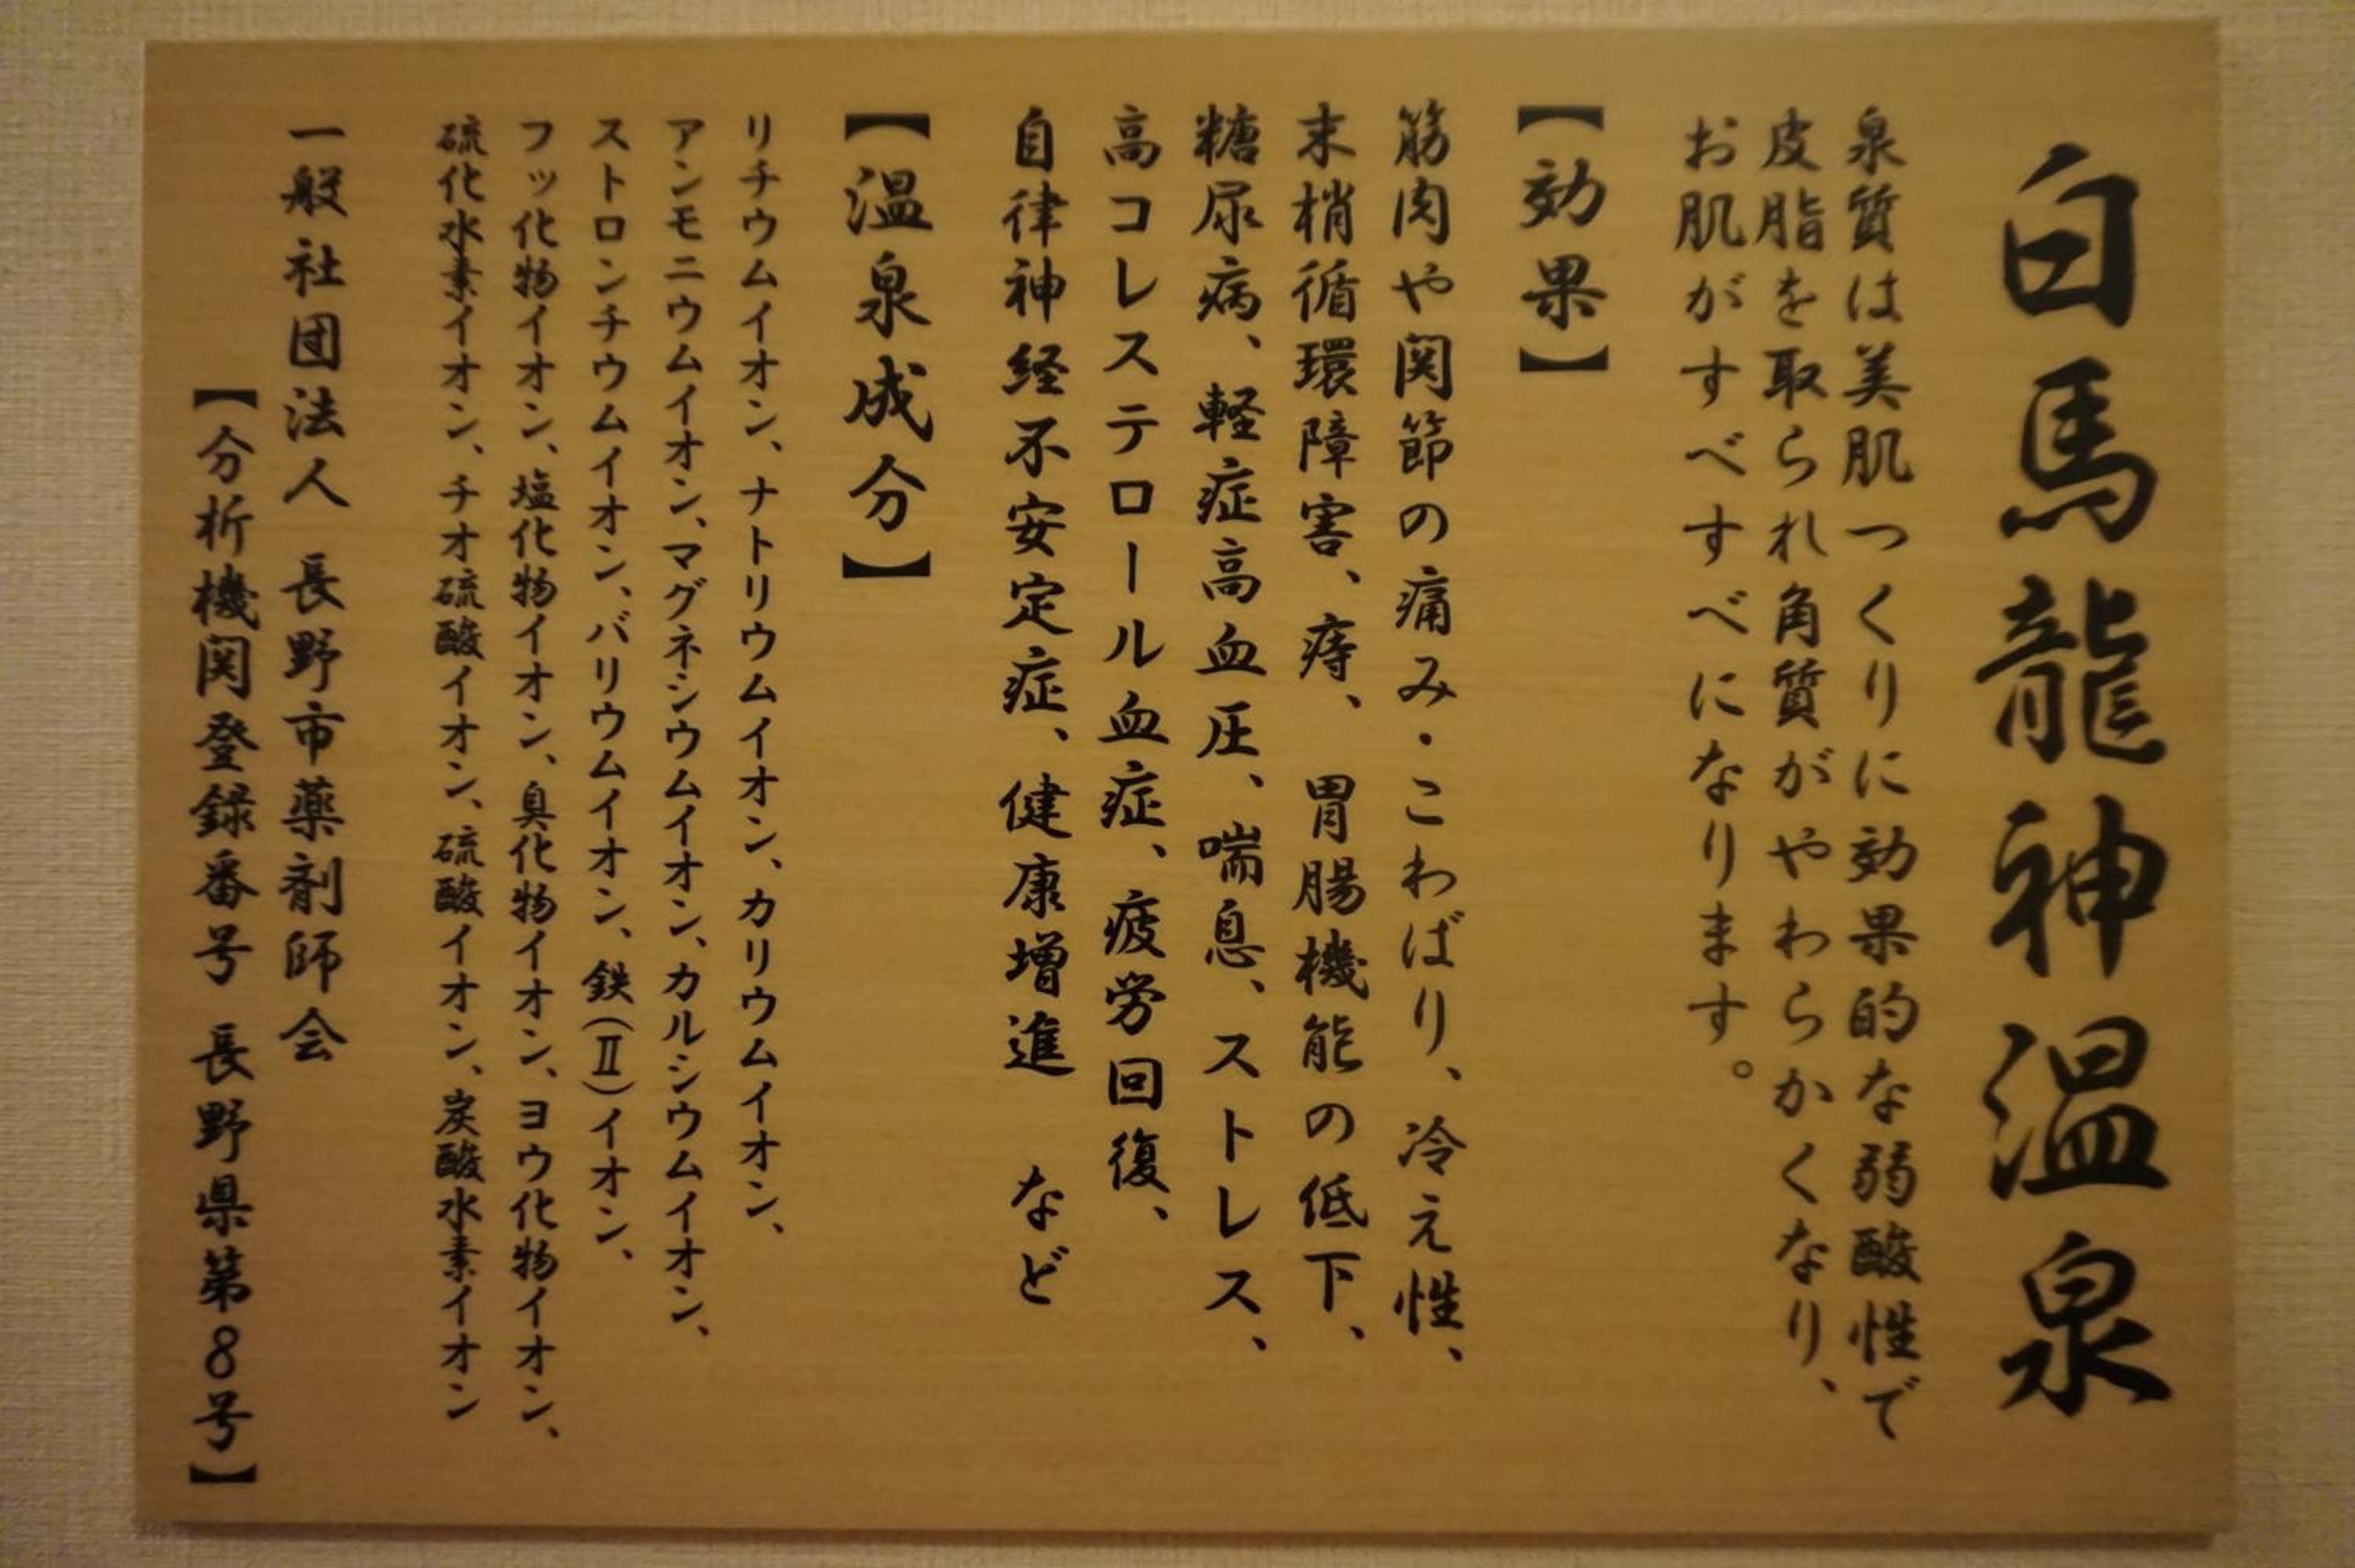 白馬龍神温泉
泉質は美肌つくりに効果的な弱酸性で
皮脂を取られ角質がやわらかくなり、
お肌がすべすべになります。
【効果】
筋肉や関節の痛み・こわばり、冷え性、
末梢循環障害、痔、胃腸機能の低下、
糖尿病、軽症高血圧、喘息、ストレス、
高コレステロール血症、疲労回復、
自律神経不安定症、健康増進 など
【温泉成分】
リチウムイオン、ナトリウムイオン、カリウムイオン、
アンモニウムイオン、マグネシウムイオン、カルシウムイオン、
ストロンチウムイオン、バリウムイオン、鉄(Ⅱ)イオン、
フッ化物イオン、塩化物イオン、臭化物イオン、ヨウ化物イオン、
硫化水素イオン、チオ硫酸イオン、硫酸イオン、炭酸水素イオン
一般社団法人 長野市薬剤師会
【分析機関登録番号 長野県第8号】